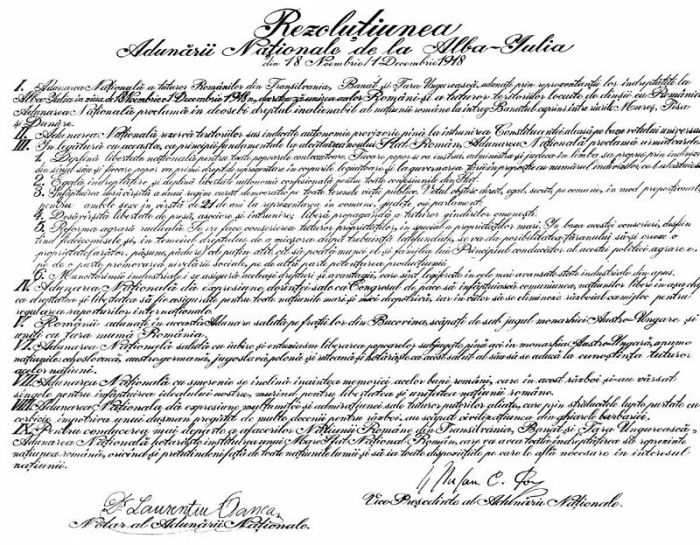 Rezoluțiunea
Adunării Naționale de la Alba-Iulia
din 18 Noembrie/1 Decembrie 1918
I. Adunarea Națională a tuturor Românilor din Transilvania, Banat și Țara Ungurească, adunați prin reprezentanții lor îndreptățiți la
Alba-Iulia în ziua de 18 Noembrie/1 Decembrie 1918, decretează unirea acelor Români și a tuturor teritoriilor locuite de dînșii cu România.
Adunarea Națională proclamă îndeosebi dreptul inalienabil al națiunii române la întreg Banatul cuprins între rîurile Mureș, Tisa
și Dunăre.
II. Adunarea Națională rezervă teritoriilor sus indicate autonomie provizorie pînă la întrunirea Constituantei aleasă pe baza votului universal.
III. În legătură cu aceasta, ca principii fundamentale la alcătuirea noului Stat Român, Adunarea Națională proclamă următoarele:
1. Deplină libertate națională pentru toate popoarele conlocuitoare. Fiecare popor se va instrui, administra și judeca în limba sa proprie prin indivizi
din sînul său și fiecare popor va primi drept de reprezentare în corpurile legiuitoare și la guvernarea țării în proporție cu numărul indivizilor ce-l alcătuiesc.
2. Egală îndreptățire și deplină libertate autonomă confesională pentru toate confesiunile din Stat.
3. Înfăptuirea desăvîrșită a unui regim curat democratic pe toate terenele vieții publice. Votul obștesc, direct, egal, secret, pe comune, în mod proporțional,
pentru ambele sexe în vîrstă de 21 de ani la reprezentarea în comune, județe ori parlament.
4. Desăvîrșită libertate de presă, asociere și întrunire; liberă propagandă a tuturor gîndurilor omenești.
5. Reforma agrară radicală. Se va face conscrierea tuturor proprietăților, în special a proprietăților mari. În baza acestei conscrieri, desființ
înd fideicomisele și, în temeiul dreptului de a micșora după trebuință latifundiile, se va da posibilitatea țăranului să-și creeze o
proprietate (arător, pășune, pădure) cel puțin atît cît să poată munci el și familia lui. Principiul conducător al acestei politici agrare e
pe de o parte promovarea nivelării sociale, pe de altă parte potențiarea producțiunii.
6. Muncitorimii industriale i se asigură aceleași drepturi și avantagii, care sînt legiferate în cele mai avansate state industriale din apus.
IV. Adunarea Națională dă expresiune dorinței sale, ca Congresul de pace să înfăptuiască comuniunea națiunilor libere în așa chip
ca dreptatea și libertatea să fie asigurate pentru toate națiunile mari și mici deopotrivă, iar în viitor să se elimineze războiul ca mijloc pentru
regularea raporturilor internaționale.
V. Românii adunați în această Adunare salută pe frații lor din Bucovina, scăpați de sub jugul monarhiei Austro-Ungare și
uniți cu țara mumă România.
VI. Adunarea Națională salută cu iubire și entuziasm liberarea popoarelor subjugate pînă aci în monarhia Austro-Ungară, anume
națiunile: cehoslovacă, austrogermană, jugoslavă, polonă și ruteană și hotărăște ca acest salut al său să se aducă la cunoștința tuturor
acelor națiuni.
VII. Adunarea Națională cu smerenie se închină înaintea memoriei acelor bravi români, care în acest război și-au vărsat
sîngele pentru înfăptuirea idealului nostru, murind pentru libertatea și unitatea națiunii române.
VIII. Adunarea Națională dă expresiune mulțumitei și admirațiunii sale tuturor puterilor aliate, care prin strălucitele lupte purtate cu
cerbicie împotriva unui dușman pregătit de multe decenii pentru război, au scăpat civilizațiunea din ghiarele barbariei.
IX. Pentru conducerea mai departe a afacerilor Națiunii Române din Transilvania, Banat și Țara Ungurească,
Adunarea Națională hotărăște instituirea unui Mare Sfat Național Român, care va avea toată îndreptățirea să reprezinte
națiunea română, oricînd și pretutindeni față de toate națiunile lumii și să ia toate dispozițiile pe care le află necesare în interesul
națiunii.
Dr. Laurențiu Oanea
Notar al Adunării Naționale.
Ștefan C. Pop
Vice-Președinte al Adunării Naționale.